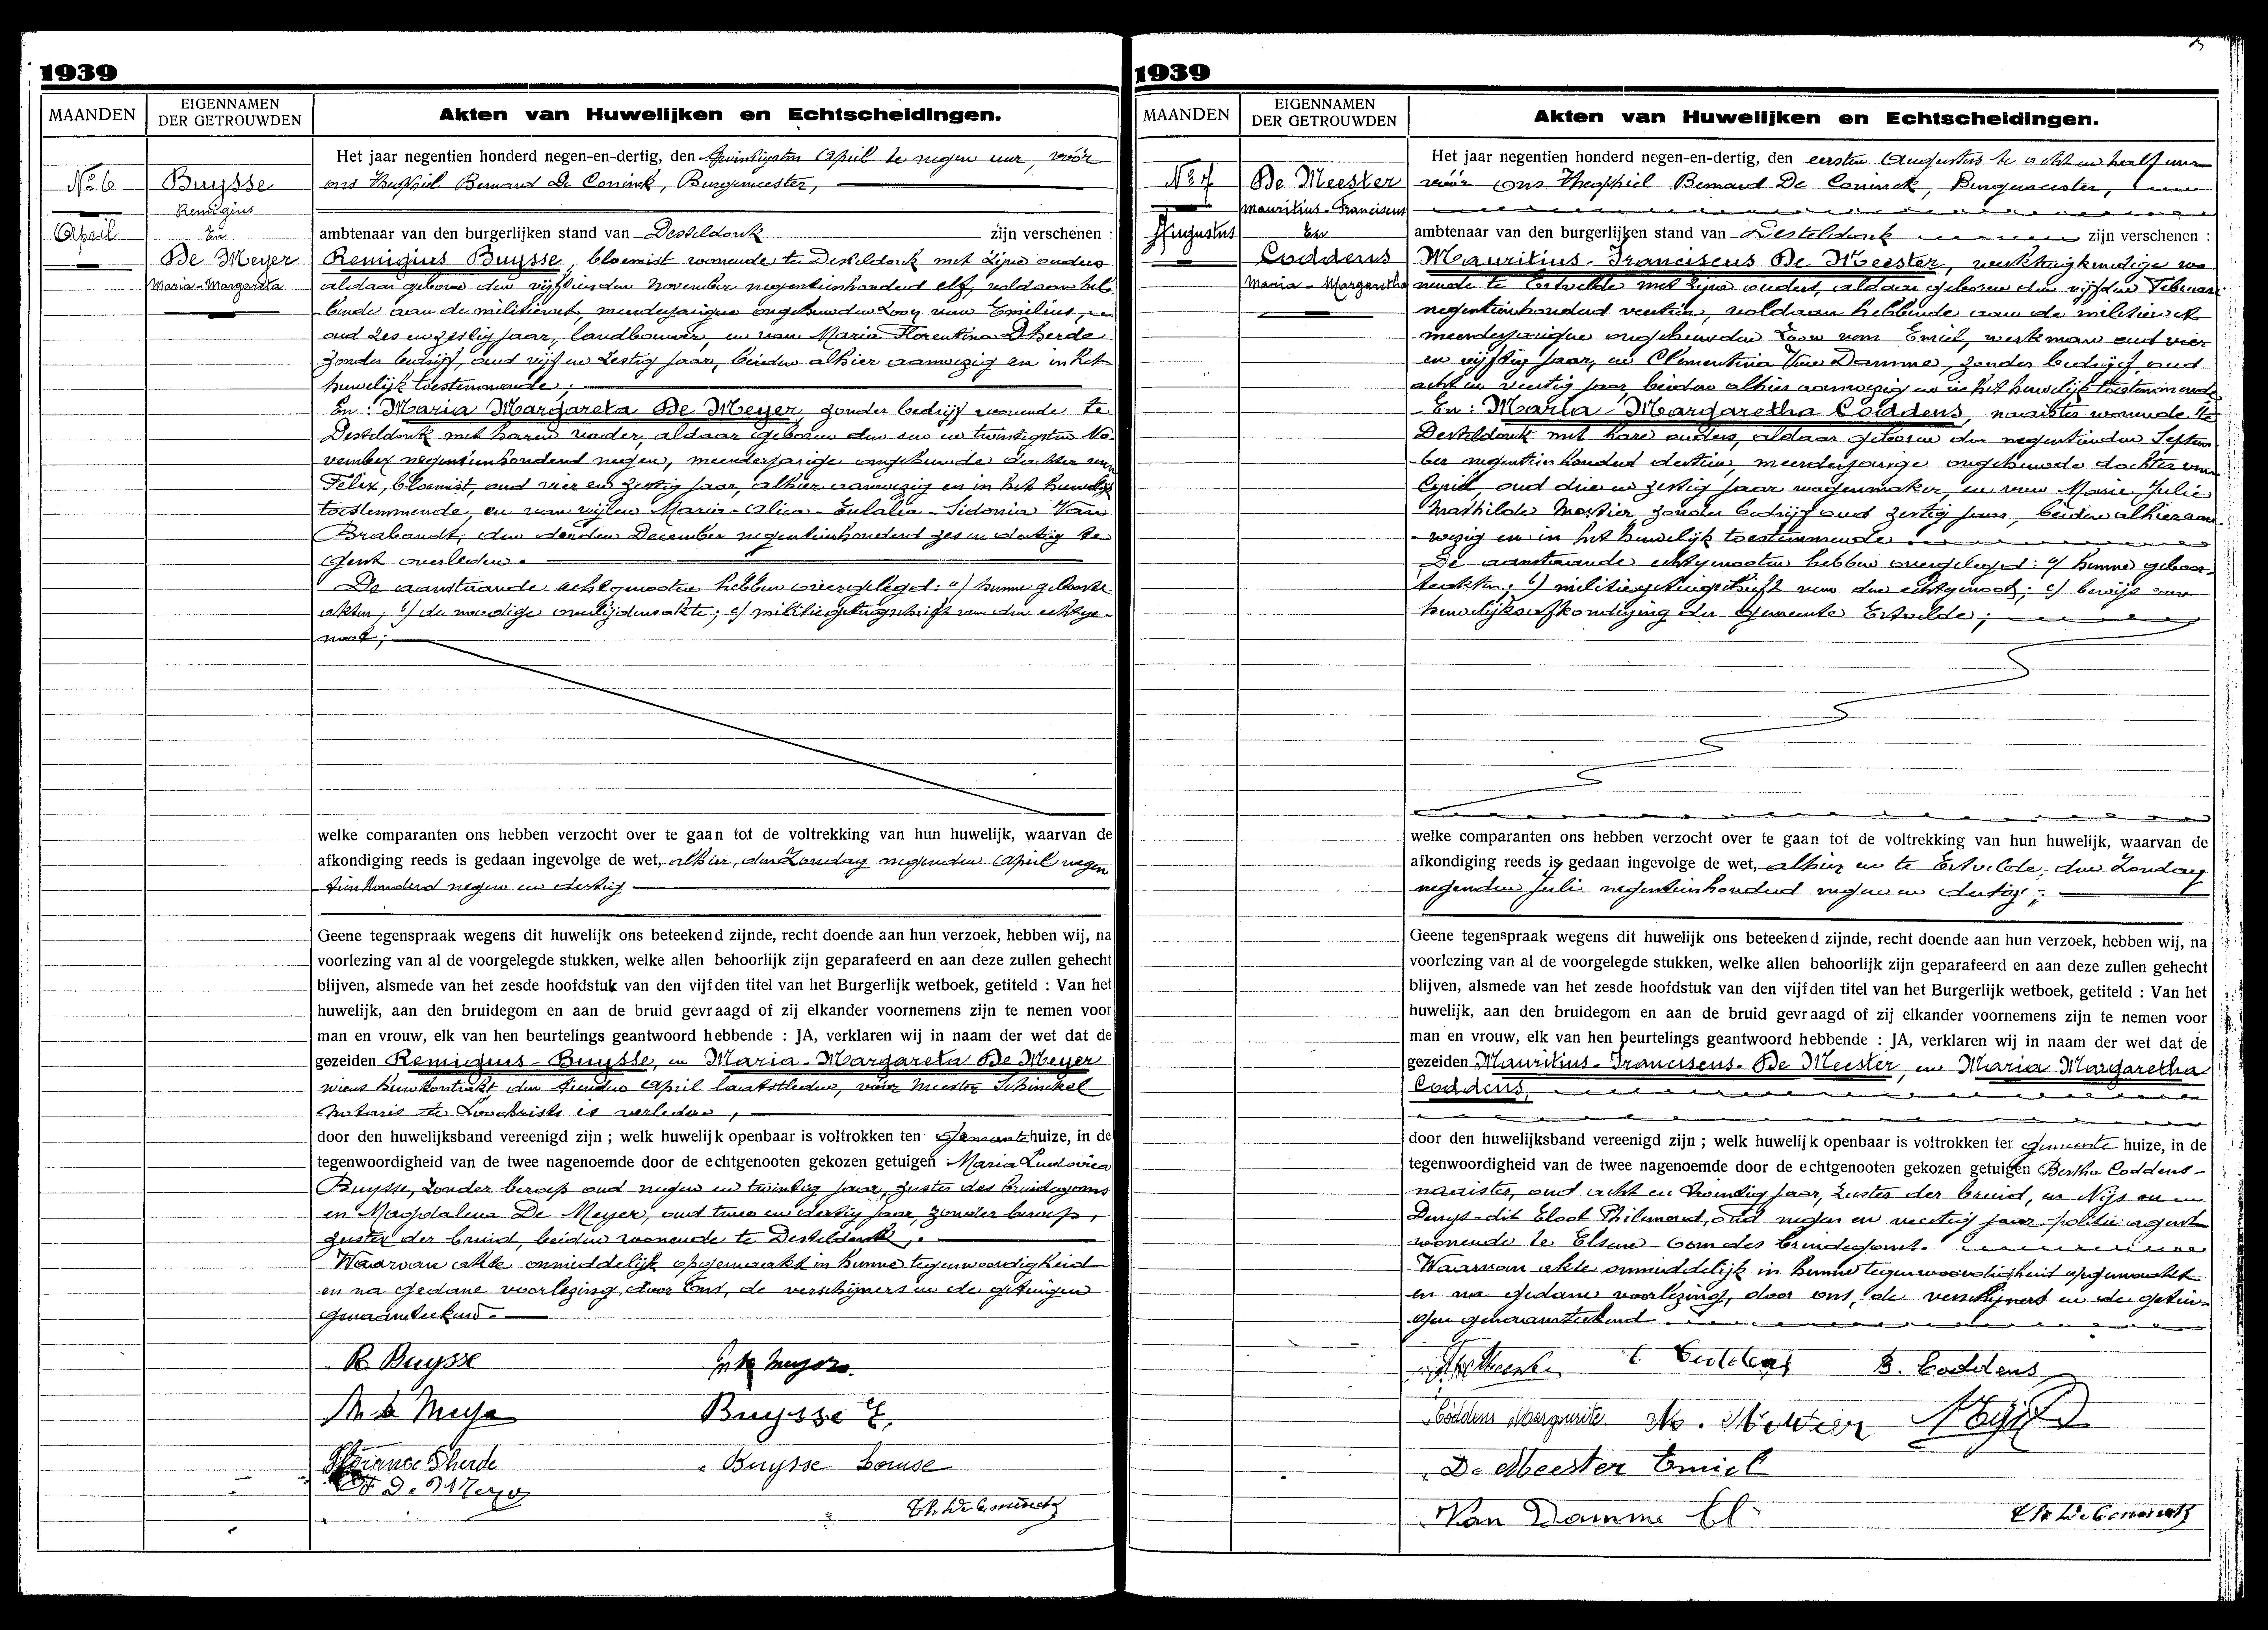 1939
MAANDEN
EIGENNAMEN
DER GETROUWDEN
Akten van Huwelijken en Echtscheidingen.
No 6
April
Buysse
Remigius
En
De Meyer
Maria-Margareta
Het jaar negentien honderd negen-en-dertig, den twintigsten April te negen uur, vóór
ons Theophiel Bernard De Coninck, Burgemeester,
ambtenaar van den burgerlijken stand van Desteldonk zijn verschenen :
Remigius Buysse, bloemist wonende te Desteldonk met zijne ouders
aldaar geboren den vijftienden November negentienhonderd elf, voldaan heb-
bende aan de militiewet, meerderjarigen ongehuwden zoon van Emilius,
oud zes en zestig jaar, landbouwer, en van Maria Florentina D'herde
zonder bedrijf, oud vijf en zestig jaar, beiden alhier aanwezig en in het
huwelijk toestemmende;
En: Maria Margareta De Meyer, zonder bedrijf wonende te
Desteldonk met haren vader, aldaar geboren den een en twintigsten No-
vember negentienhonderd negen, meerderjarige ongehuwde dochter van
Felix, bloemist, oud vier en zestig jaar, alhier aanwezig en in het huwelijk
toestemmende, en van wijlen Maria-Alica-Eulalia-Sidonia Van
Brabandt, den derden December negentienhonderd zes en dertig te
Gent overleden.
De aanstaande echtgenooten hebben overgelegd: a) hunne geboorte
akten; b) de noodige overlijdensakte; c) militiegetuigschrift van den echtge-
noot;
welke comparanten ons hebben verzocht over te gaan tot de voltrekking van hun huwelijk, waarvan de
afkondiging reeds is gedaan ingevolge de wet, alhier, den Zondag negenden April negen
tienhonderd negen en dertig
Geene tegenspraak wegens dit huwelijk ons beteekend zijnde, recht doende aan hun verzoek, hebben wij, na
voorlezing van al de voorgelegde stukken, welke allen behoorlijk zijn geparafeerd en aan deze zullen gehecht
blijven, alsmede van het zesde hoofdstuk van den vijfden titel van het Burgerlijk wetboek, getiteld : Van het
huwelijk, aan den bruidegom en aan de bruid gevraagd of zij elkander voornemens zijn te nemen voor
man en vrouw, elk van hen beurtelings geantwoord hebbende : JA, verklaren wij in naam der wet dat de
gezeiden Remigius-Buysse, en Maria-Margareta De Meyer
wiens huwkontrakt den tienden April laatstleden, vóór Meester Schinckel
Notaris te Loochristi is verleden,
door den huwelijksband vereenigd zijn ; welk huwelijk openbaar is voltrokken ten Gemeentehuize, in de
tegenwoordigheid van de twee nagenoemde door de echtgenooten gekozen getuigen : Maria Ludovica
Buysse, zonder beroep oud negen en twintig jaar, zuster des bruidegoms
en Magdalena De Meyer, oud twee en dertig jaar, zonder beroep,
zuster der bruid, beiden wonende te Desteldonk.
Waarvan akte onmiddelijk opgemaakt in hunne tegenwoordigheid
en na gedane voorlezing door Ons, de verschijners en de getuigen
genaamteekend.
R. Buysse
M De Meyer
Buysse E.
Florence Dherde
Buysse Louise
F. De Meyer
Th. De Coninck
1939
MAANDEN
EIGENNAMEN
DER GETROUWDEN
Akten van Huwelijken en Echtscheidingen.
No 7
Augustus
De Meester
Mauritius-Franciscus
En
Coddens
Maria-Margaretha
Het jaar negentien honderd negen-en-dertig, den eersten Augustus te acht en half uur
vóór ons Theophiel Bernard De Coninck, Burgemeester,
ambtenaar van den burgerlijken stand van Desteldonk zijn verschenen :
Mauritius-Franciscus De Meester, werktuigkundige wo-
nende te Ertvelde met zijne ouders, aldaar geboren den vijfden Februari
negentienhonderd veertien, voldaan hebbende aan de militiewet
meerderjarigen ongehuwden zoon van Emiel, werkman oud vier
en vijftig jaar, en Clementina Van Damme, zonder bedrijf, oud
acht en veertig jaar beiden alhier aanwezig en in het huwelijk toestemmende
En: Maria-Margaretha Coddens, naaister wonende te
Desteldonk met hare ouders, aldaar geboren den negentienden Septem
ber negentienhonderd dertien, meerderjarige ongehuwde dochter van
Cyriel, oud drie en zestig jaar wagenmaker, en van Marie Julie
Mathilde Mestier, zonder bedrijf oud zestig jaar, beiden alhier aan-
wezig en in het huwelijk toestemmende.
De aanstaande echtgenooten hebben overgelegd: a) hunne geboor-
teakten; b) militiegetuigschrift van den echtgenoot; c) bewijs van
huwelijksafkondiging der Gemeente Ertvelde;
welke comparanten ons hebben verzocht over te gaan tot de voltrekking van hun huwelijk, waarvan de
afkondiging reeds is gedaan ingevolge de wet, alhier en te Ertvelde, den Zondag
negenden Juli negentienhonderd negen en dertig;
Geene tegenspraak wegens dit huwelijk ons beteekend zijnde, recht doende aan hun verzoek, hebben wij, na
voorlezing van al de voorgelegde stukken, welke allen behoorlijk zijn geparafeerd en aan deze zullen gehecht
blijven, alsmede van het zesde hoofdstuk van den vijfden titel van het Burgerlijk wetboek, getiteld : Van het
huwelijk, aan den bruidegom en aan de bruid gevraagd of zij elkander voornemens zijn te nemen voor
man en vrouw, elk van hen beurtelings geantwoord hebbende : JA, verklaren wij in naam der wet dat de
gezeiden Mauritius-Franciscus-De Meester, en Maria Margaretha
Coddens,
door den huwelijksband vereenigd zijn ; welk huwelijk openbaar is voltrokken ter gemeente huize, in de
tegenwoordigheid van de twee nagenoemde door de echtgenooten gekozen getuigen Bertha Coddens-
naaister, oud acht en twintig jaar, zuster der bruid, en Nijs en
Denys-dit Eloot Philemond, oud negen en veertig jaar politie agent
wonende te Elsene-oom des bruidegoms.
Waarvan akte onmiddelijk in hunne tegenwoordigheid opgemaakt
en na gedane voorlezing, door ons, de verschijners en de getui-
gen genaamteekend.
C. Coddens
B. Coddens
Coddens Marguerite
M. Mestier
De Meester Emiel
Van Damme Cl.
Th. De Coninck